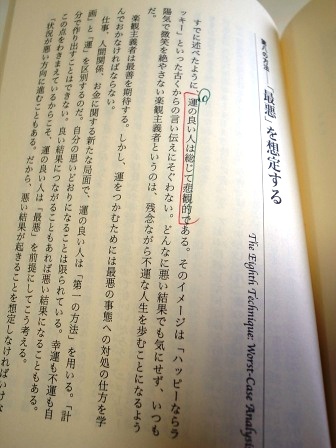 第八の方法
「最悪」を想定する
The Eighth Technique: Worst-Case Analysis
すでに述べたように、運の良い人は総じて悲観的である。そのイメージは「ハッピーならラ
ッキー」といった古くからの言い伝えにそぐわない。どんなに悪い結果でも気にせず、いつも
陽気で微笑を絶やさない楽観主義者というのは、残念ながら不運な人生を歩むことになるよう
だ。
楽観主義者は最善を期待する。しかし、運をつかむためには最悪の事態への対処の仕方を学
んでおかなければならない。
仕事、人間関係、お金に関する新たな局面で、運の良い人は「第一の方法」を用いる。「計
画」と「運」を区別するのだ。自分の思いどおりになることは限られている。幸運も不運も自
分で作り出すことはできない。良い結果につながることもあれば悪い結果になることもある。
この点をわきまえているからこそ、運の良い人は「最悪」を前提にしてこう考える。
「状況が悪い方向に進むこともある。だから、悪い結果が起きることを想定しなければいけな